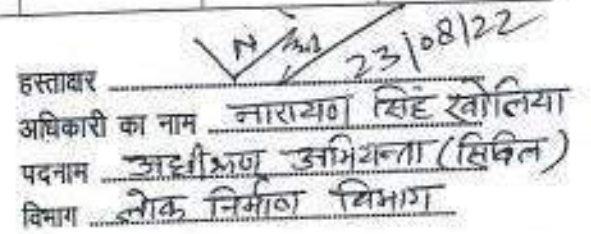 23/08/22
हस्ताक्षर
अधिकारी का नाम नारायण सिंह खोलिया
पदनाम अधीक्षण अभियन्ता (सिविल)
विभाग लोक निर्माण विभाग